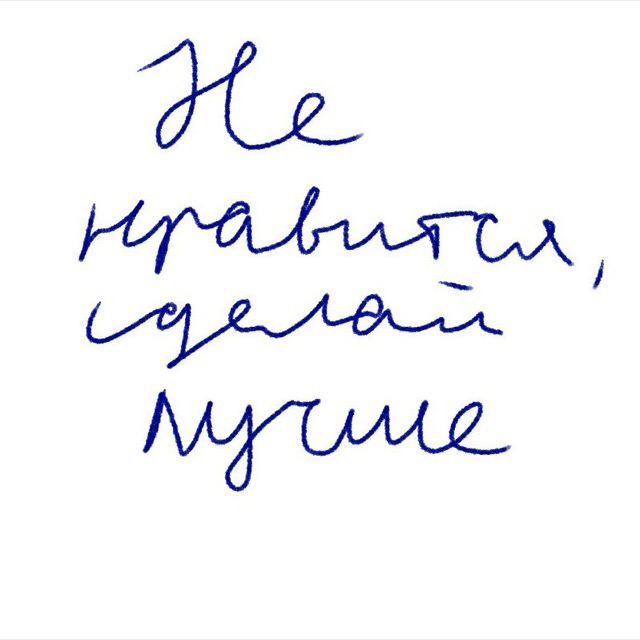 Не
нравится,
сделай
лучше